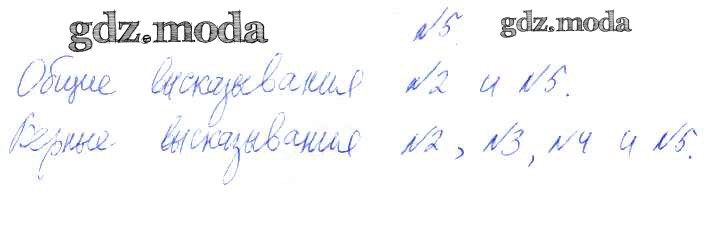 gdz.moda
№5. gdz.moda
Общие высказывания №2 и №5.
Верные высказывания №2, №3, №4 и №5.